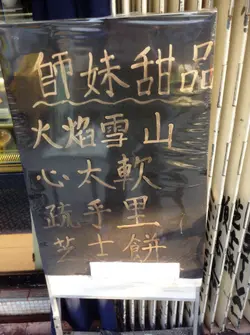 師妹甜品
火焰雪山
心大軟
疏乎里
芝士餅